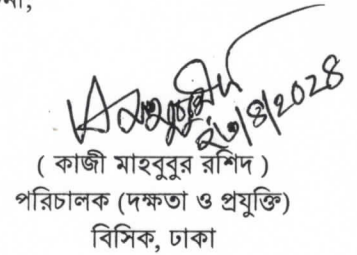 ( কাজী মাহবুবুর রশিদ )
পরিচালক (দক্ষতা ও প্রযুক্তি)
বিসিক, ঢাকা